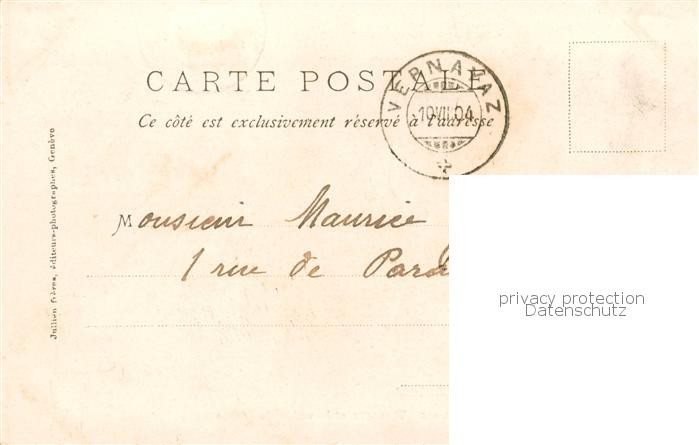 CARTE POSTALE
VERNAYAZ
10.VII.04
Ce côté est exclusivement réservé à l'adresse
Monsieur Maurice
1 rue de Parad
privacy protection
Datenschutz
Jullien frères, éditeurs-photographes, Genève